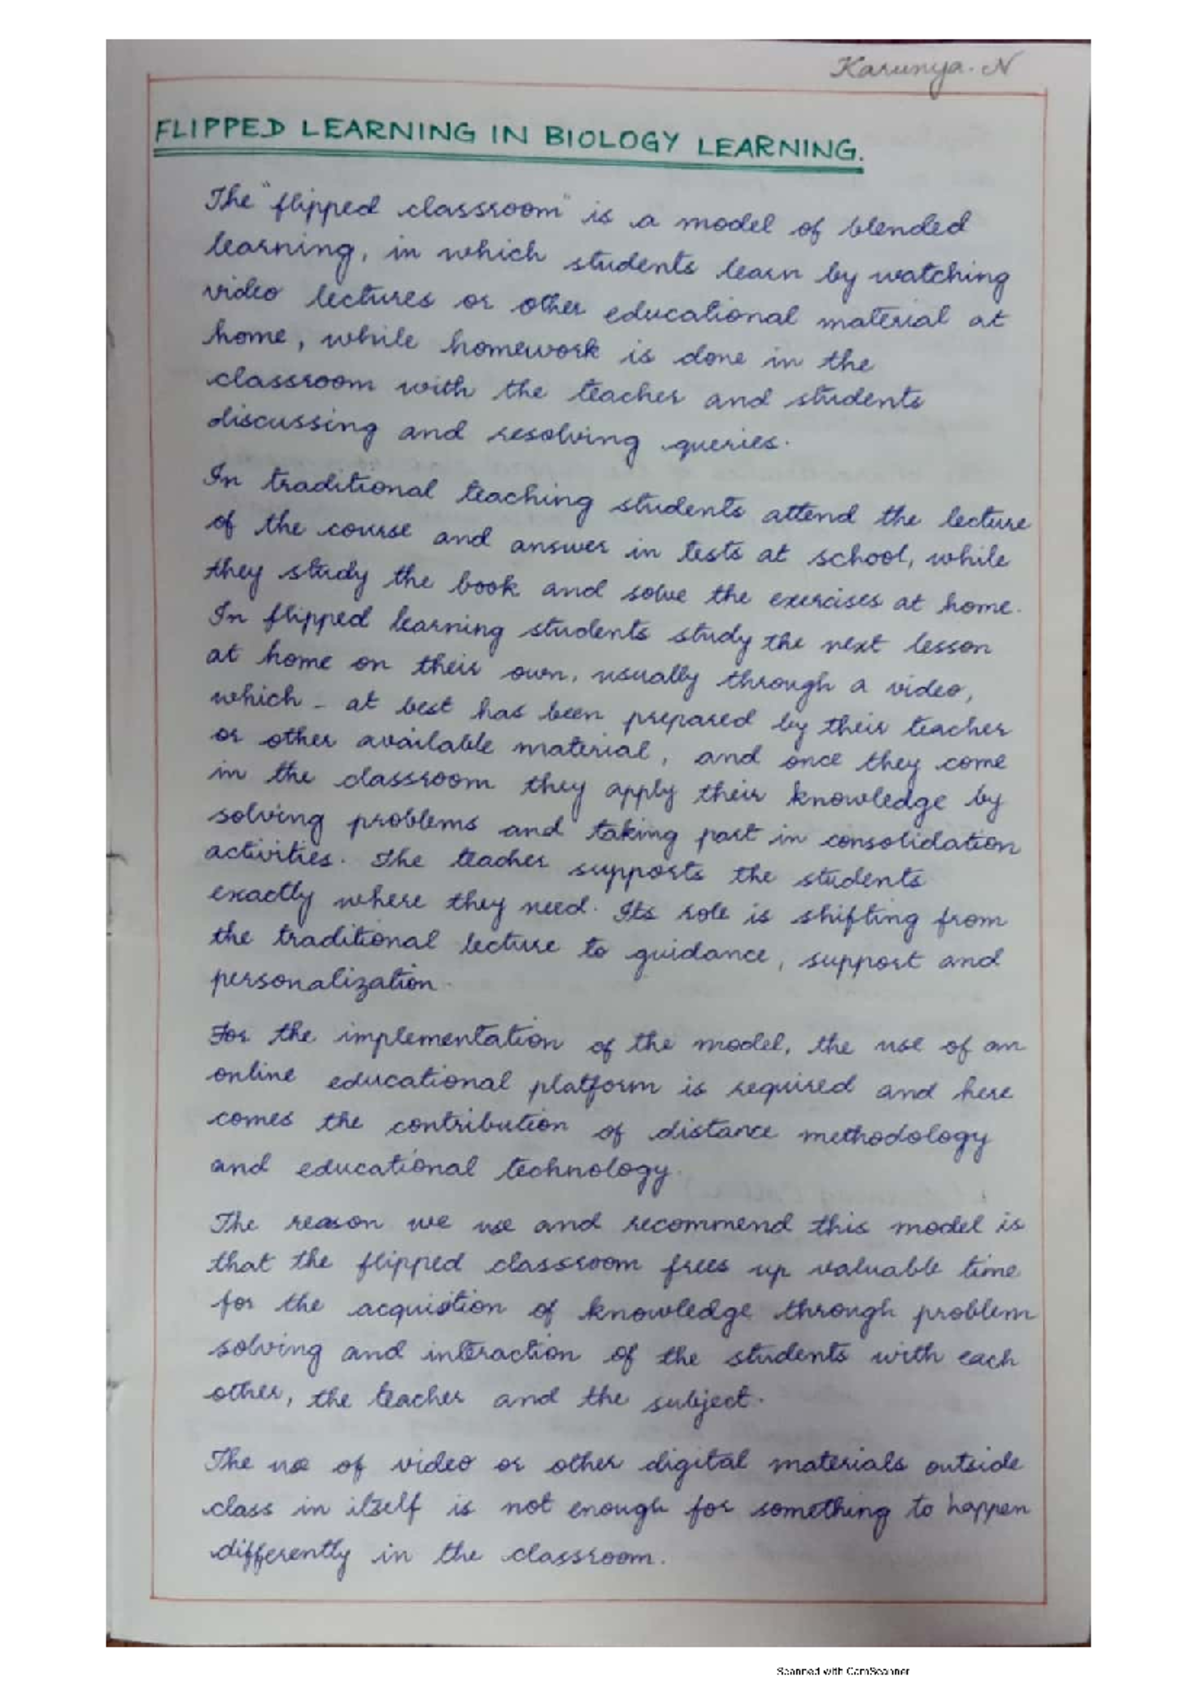 Karunya. N
FLIPPED LEARNING IN BIOLOGY LEARNING.
The "flipped classroom" is a model of blended
learning, in which students learn by watching
video lectures or other educational material at
home, while homework is done in the
classroom with the teacher and students
discussing and resolving queries.
In traditional teaching students attend the lecture
of the course and answer in tests at school, while
they study the book and solve the exercises at home.
In flipped learning students study the next lesson
at home on their own, usually through a video,
which - at best has been prepared by their teacher
or other available material, and once they come
in the classroom they apply their knowledge by
solving problems and taking part in consolidation
activities. The teacher supports the students
exactly where they need. Its role is shifting from
the traditional lecture to guidance, support and
personalization.
For the implementation of the model, the use of an
online educational platform is required and here
comes the contribution of distance methodology
and educational technology.
The reason we use and recommend this model is
that the flipped classroom frees up valuable time
for the acquistion of knowledge through problem
solving and interaction of the students with each
other, the teacher and the subject.
The use of video or other digital materials outside
class in itself is not enough for something to happen
differently in the classroom.
Scanned with CamScanner